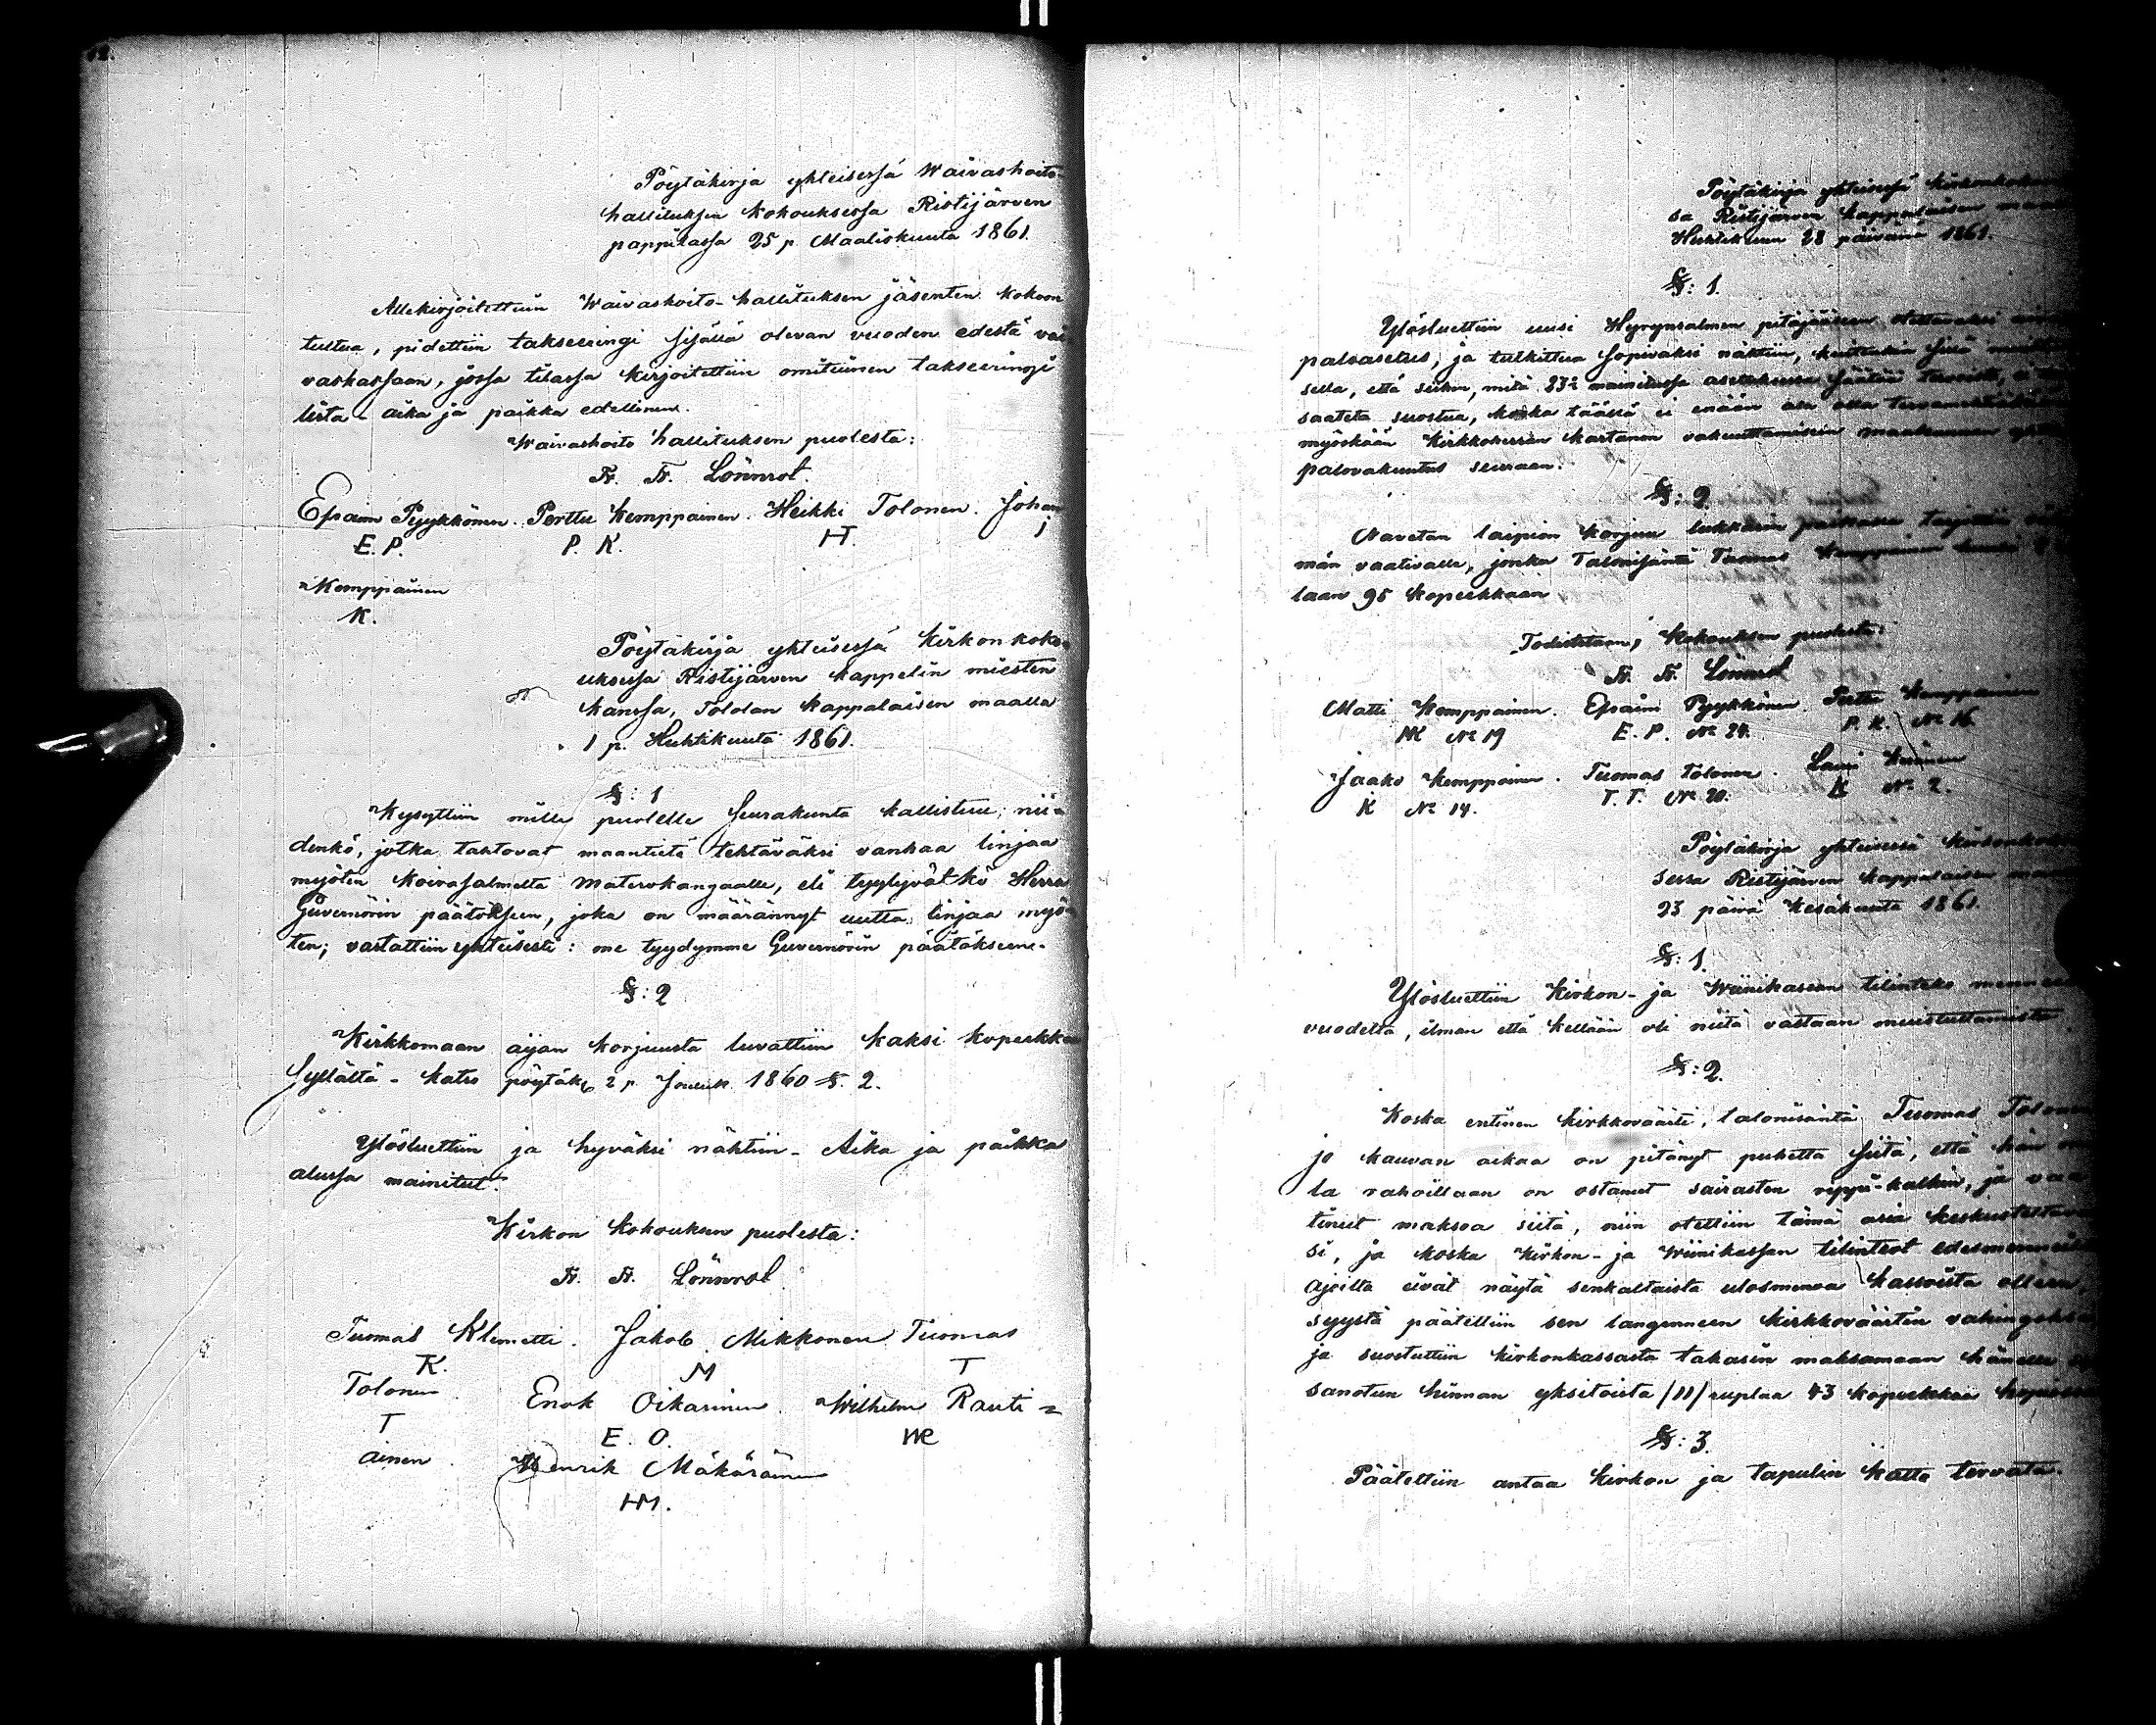 12.
Pöytäkirja yhteisessä Waivashoito-
hallituksen kokouksessa Ristijärven
pappilassa 25 p. Maaliskuuta 1861.
Allekirjoitettuin Waivashoito-hallituksen jäsenten kokoon
tultua, pidettiin takseeringi sisällä olevan vuoden edestä vai
vaskassaan, jossa tilassa kirjoitettiin omituinen takseeringi
lista - aika ja paikka edellinen.
Waivashoito hallituksen puolesta:
Fr. Fr. Lönnrot.
Efraim Pyykkönen. Perttu Kemppainen. Heikki Tolonen. Johan
E. P. P. K. HT. J
Kemppainen
K.
Pöytäkirja yhteisessä Kirkonkoko-
uksessa Ristijärven kappelin miesten
kanssa, Tololan kappalaisen maalla
1 p. Huhtikuuta 1861.
§: 1
Kysyttiin mille puolelle seurakunta kallistuu; nii-
denkö, jotka tahtovat maantietä tehtäväksi vanhaa linjaa
myöten Koirasalmelta Materokangaalle, eli tyytyvätkö Herra
Guvernörin päätökseen, joka on määrännyt uutta linjaa myö-
ten; vastattiin yhteisesti: me tyydymme Guvernörin päätökseen.
§: 2
Kirkkomaan aijan korjuusta luvattiin kaksi kopeekkaa
syllältä - katso pöytäk. 2 p. Jouluk. 1860 §. 2.
Ylösluettiin ja hyväksi nähtiin - Aika ja paikka
alussa mainitut.
Kirkon kokouksen puolesta:
Fr. Fr. Lönnrot.
Tuomas Klemetti. Jakob Mikkonen Tuomas
K. M T
Tolonen Enok Oikarinen. Wilhelm Rauti=
T E. O. WR
ainen. Henrik Mäkäräinen
HM.
Pöytäkirja yhteisessä kirkonkokouk
sa Ristijärven kappalaisen maa
Huhtikuun 28 päivänä 1861.
§: 1.
Ylösluettiin uusi Hyrynsalmen pitäjääseen otettavaksi
paloasetus, ja tulkittua sopivaksi nähtiin, kuitenkin sillä
sella, että seikun, mitä 23: mainitussa asetuksessa säätää
saateta suostua, koska täällä ei enään ala olla
myöskään Kirkkoherran kartanon vakuuttamiseen maakunnan
palovakuutus seuraan.
§: 2
Navetan laipion korjuu lukkarin paikalla tarjottiin
män vaativalle, jonka Talonisäntä Tuomas Kemppainen
laan 95 kopeekkaan
Todistetaan, Kokouksen puolesta:
Fr. Fr. Lönnrot
Matti Kemppainen. Efraim Pyykkönen Perttu Kemppainen
MK No 19 E. P. No 24. P. K. No 16
Jaako Kemppainen. Tuomas Tolonen. Lauri
K No 14. T. T. No 20. K No 2.
Pöytäkirja yhteisessä kirkonkokouk
sessa Ristijärven kappalaisen maa
23 päivä Kesäkuuta 1861.
§: 1.
Ylösluettiin Kirkon- ja Wiinikassan tilinteko mennee
vuodelta, ilman että kellään oli niitä vastaan muistuttamista
§: 2.
Koska entinen kirkkoväärti, talonisäntä Tuomas Tolonen
jo kauvan aikaa on pitänyt puhetta siitä, että hän om
la rahoillaan on ostanut sairasten rippi-kalkin, ja vaa
tinut maksoa siitä, niin otettiin tämä asia keskusteltava
si, ja koska Kirkon- ja Wiinikassan tilinteot edesmenneiltä
ajoilta eivät näytä senkaltaista ulosmenoa kassoista olleen,
syystä päätettiin sen langenneen kirkkoväärtin vahingoksi
ja suostuttiin kirkonkassasta takasin maksamaan hänelle
sanotun hinnan yksitoista /11/ ruplaa 43 kopeekkaa hopiassa
§: 3.
Päätettiin antaa kirkon ja tapulin katto tervata.